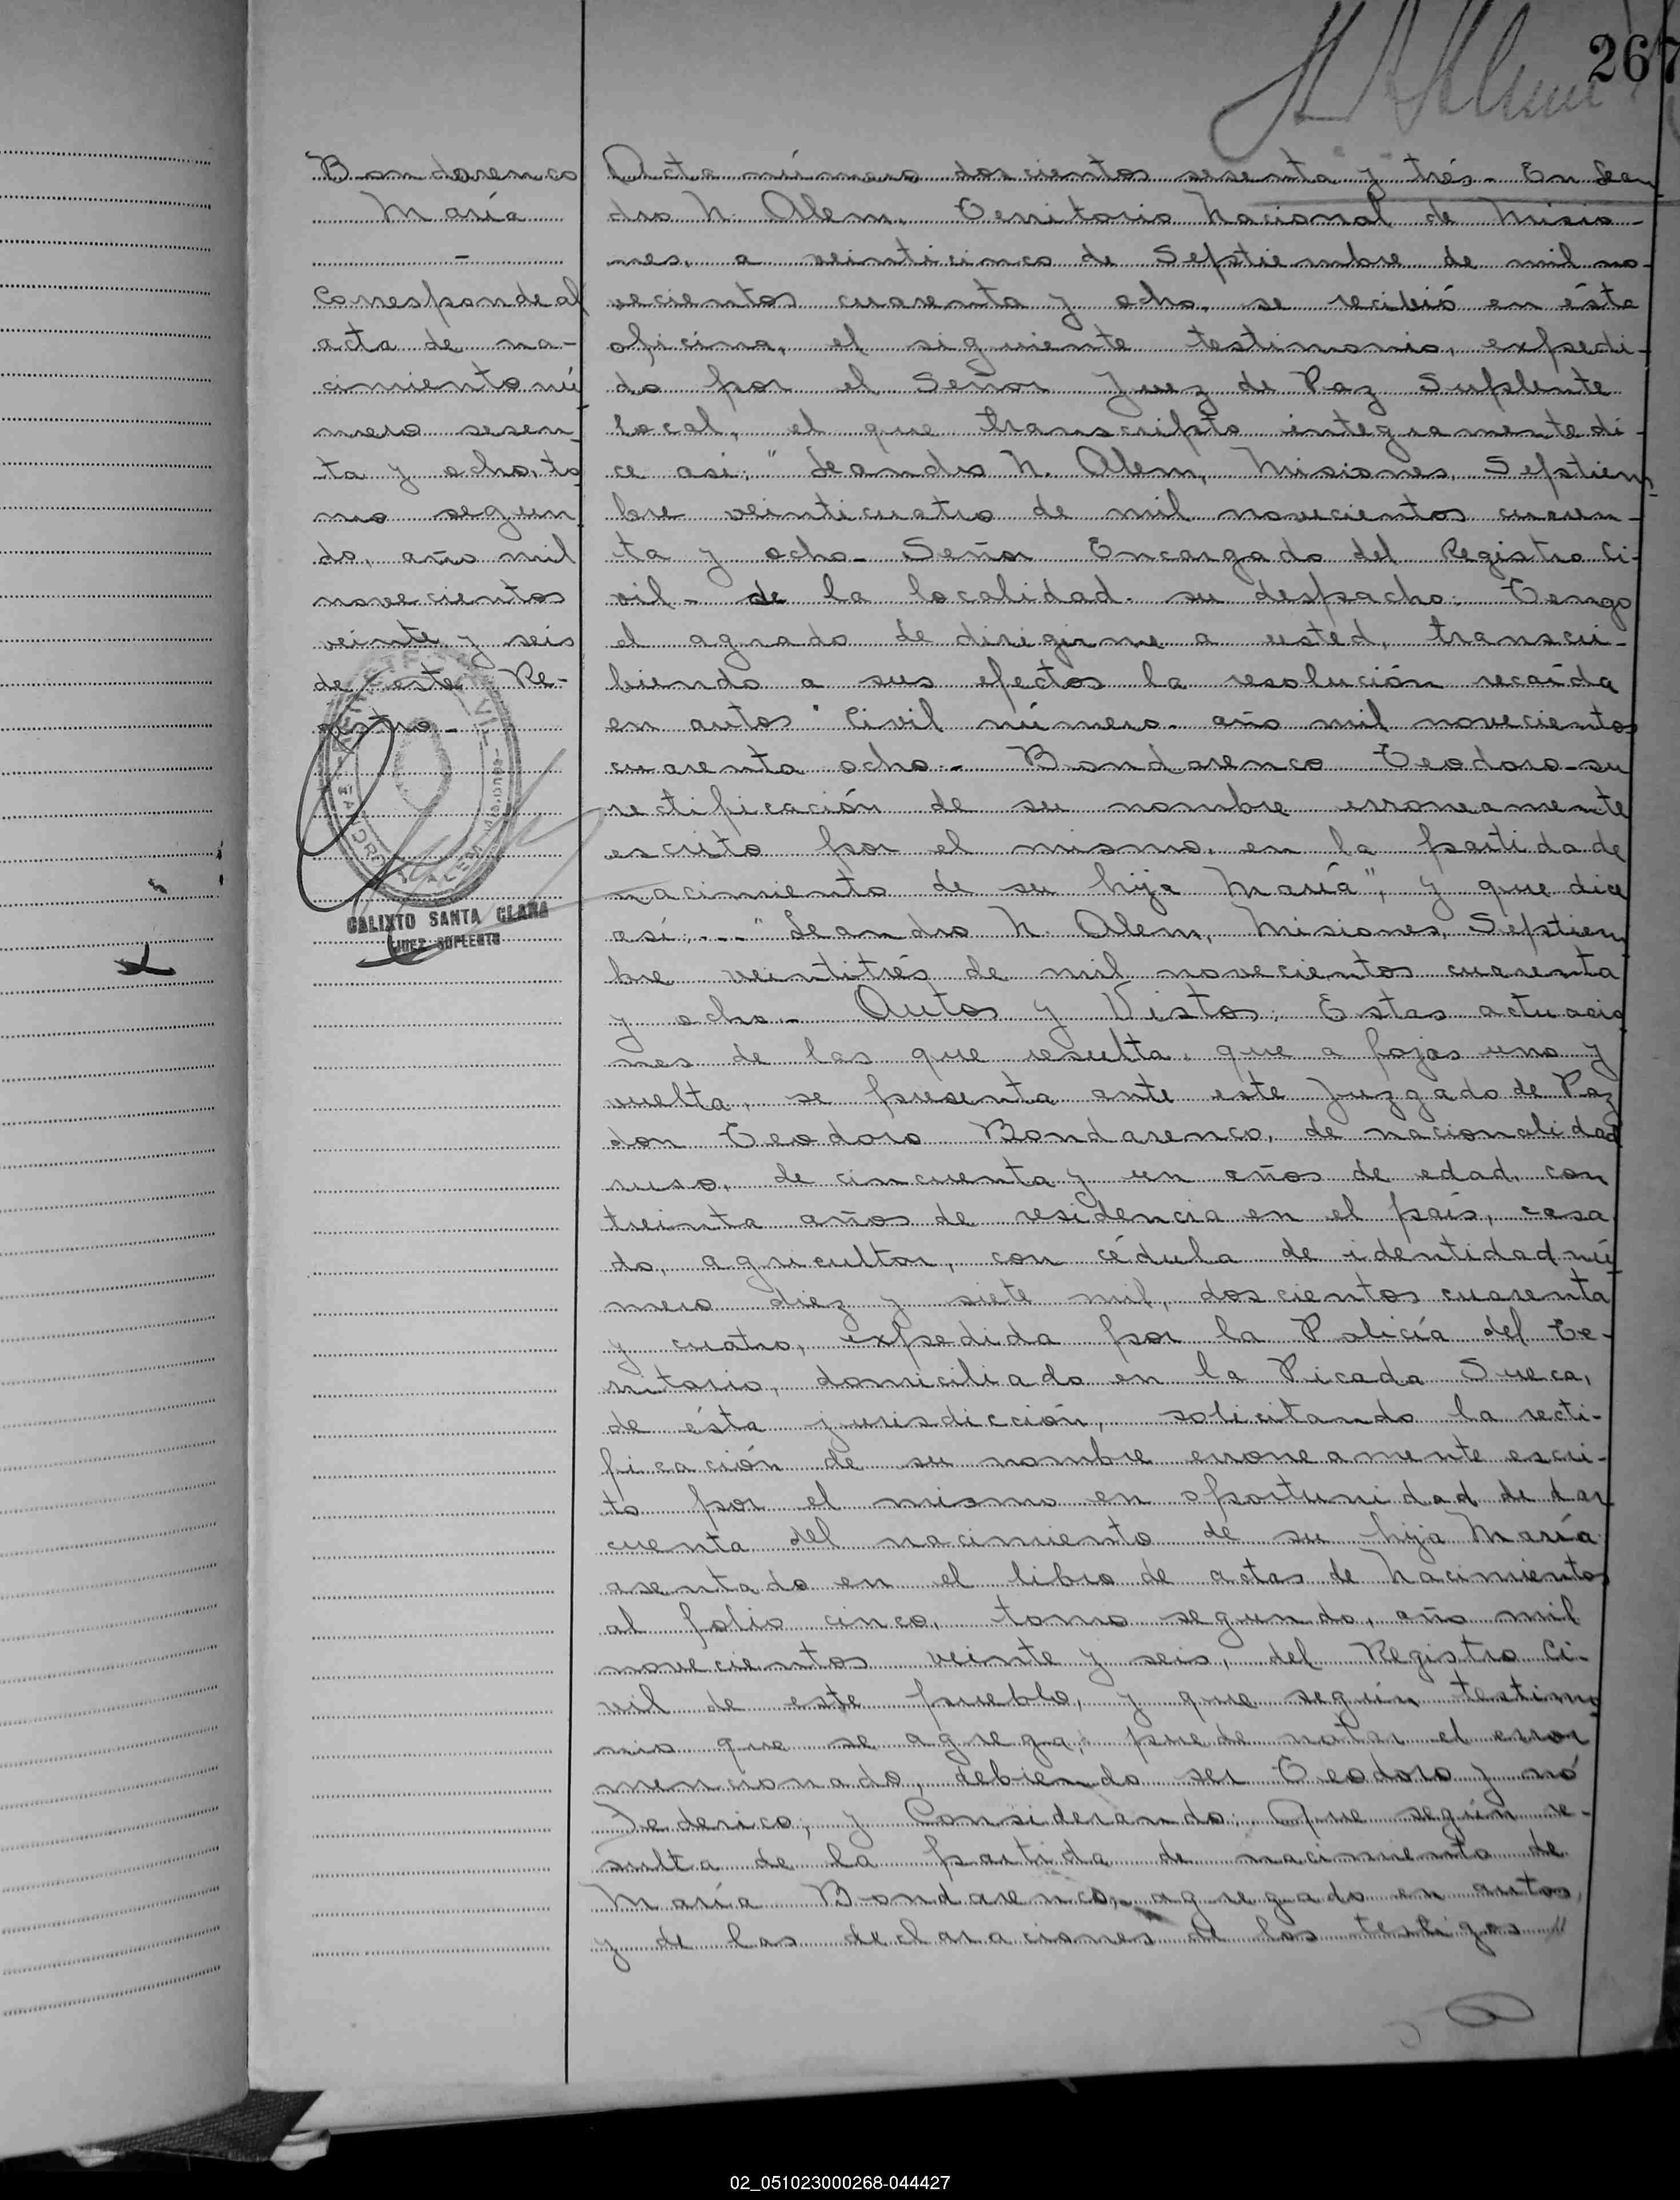 267
Bondarenco
María
-
Corresponde al
acta de na-
cimiento nú
mero sesen-
ta y ocho, to
mo segun
do, año mil
novecientos
veinte y seis
de este Re-
gistro.-
CALIXTO SANTA CLARA
JUEZ SUPLENTE
Acta número doscientos sesenta y trés.- En Lean
dro N. Alem, Territorio Nacional de Misio-
nes, a veinticinco de Septiembre de mil no-
vecientos cuarenta y ocho, se recibió en ésta
oficina, el siguiente testimonio, expedi-
do por el Señor Juez de Paz Suplente
local, el que transcripto integramente di-
ce asi: "Leandro N. Alem, Misiones, Septiem-
bre veinticuatro de mil novecientos cuaren-
ta y ocho.- Señor Encargado del Registro Ci-
vil.- de la localidad. su despacho: Tengo
el agrado de dirigirme a usted, transcri-
biendo a sus efectos la resolución recaída
en autos "Civil número- año mil novecientos
cuarenta ocho.- Bondarenco Teodoro-su
rectificación de su nombre erroneamente
escrito por el mismo, en la partida de
nacimiento de su hija María", y que dice
así:..." Leandro N. Alem, Misiones, Septiem
bre veintitrés de mil novecientos cuarenta
y ocho.- Autos y Vistos: Estas actuacio
nes de las que resulta: que a fojas uno y
vuelta, se presenta ante este Juzgado de Paz
don Teodoro Bondarenco, de nacionalidad
ruso, de cincuenta y un años de edad, con
treinta años de residencia en el país, casa
do, agricultor, con cédula de identidad nú
mero diez y siete mil, doscientos cuarenta
y cuatro, expedida por la Policía del Te-
rritorio, domiciliado en la Picada Sueca,
de ésta jurisdicción, solicitando la recti-
ficación de su nombre erroneamente escri-
to por el mismo en oportunidad de dar
cuenta del nacimiento de su hija María
asentado en el libro de actas de Nacimientos
al folio cinco, tomo segundo, año mil
novecientos veinte y seis, del Registro Ci-
vil de este pueblo, y que según testimo
nio que se agrega, puede notar el error
mencionado, debiendo ser Teodoro y nó
Federico; y Considerando: Que según re-
sulta de la partida de nacimiento de
María Bondarenco, agregado en autos,
y de las declaraciones de los testigos //
02_051023000268-044427